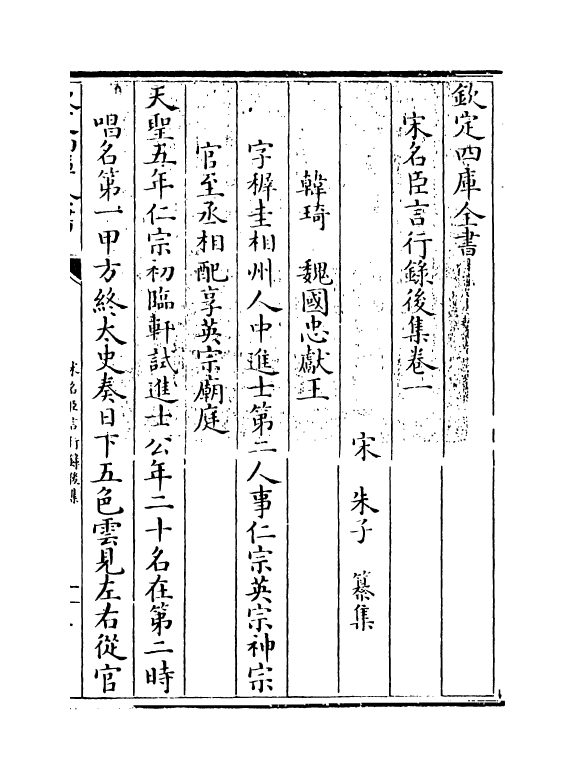 欽定四庫全書
宋名臣言行錄後集卷一
宋 朱子 纂集
韓琦 魏國忠獻王
字穉圭相州人中進士第二人事仁宗英宗神宗
官至丞相配享英宗廟庭
天聖五年仁宗初臨軒試進士公年二十名在第二時
唱名第一甲方終太史奏日下五色雲見左右從官
宋名臣言行錄後集